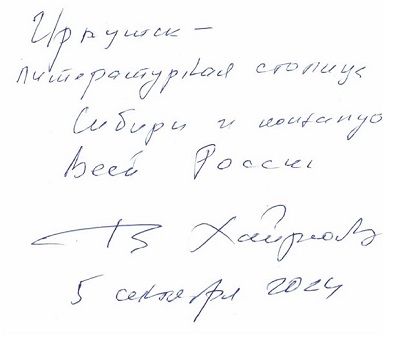 Иркутск –
литературная столица
Сибири и
Всей России
В Хайрюзов
5 сентября 2024